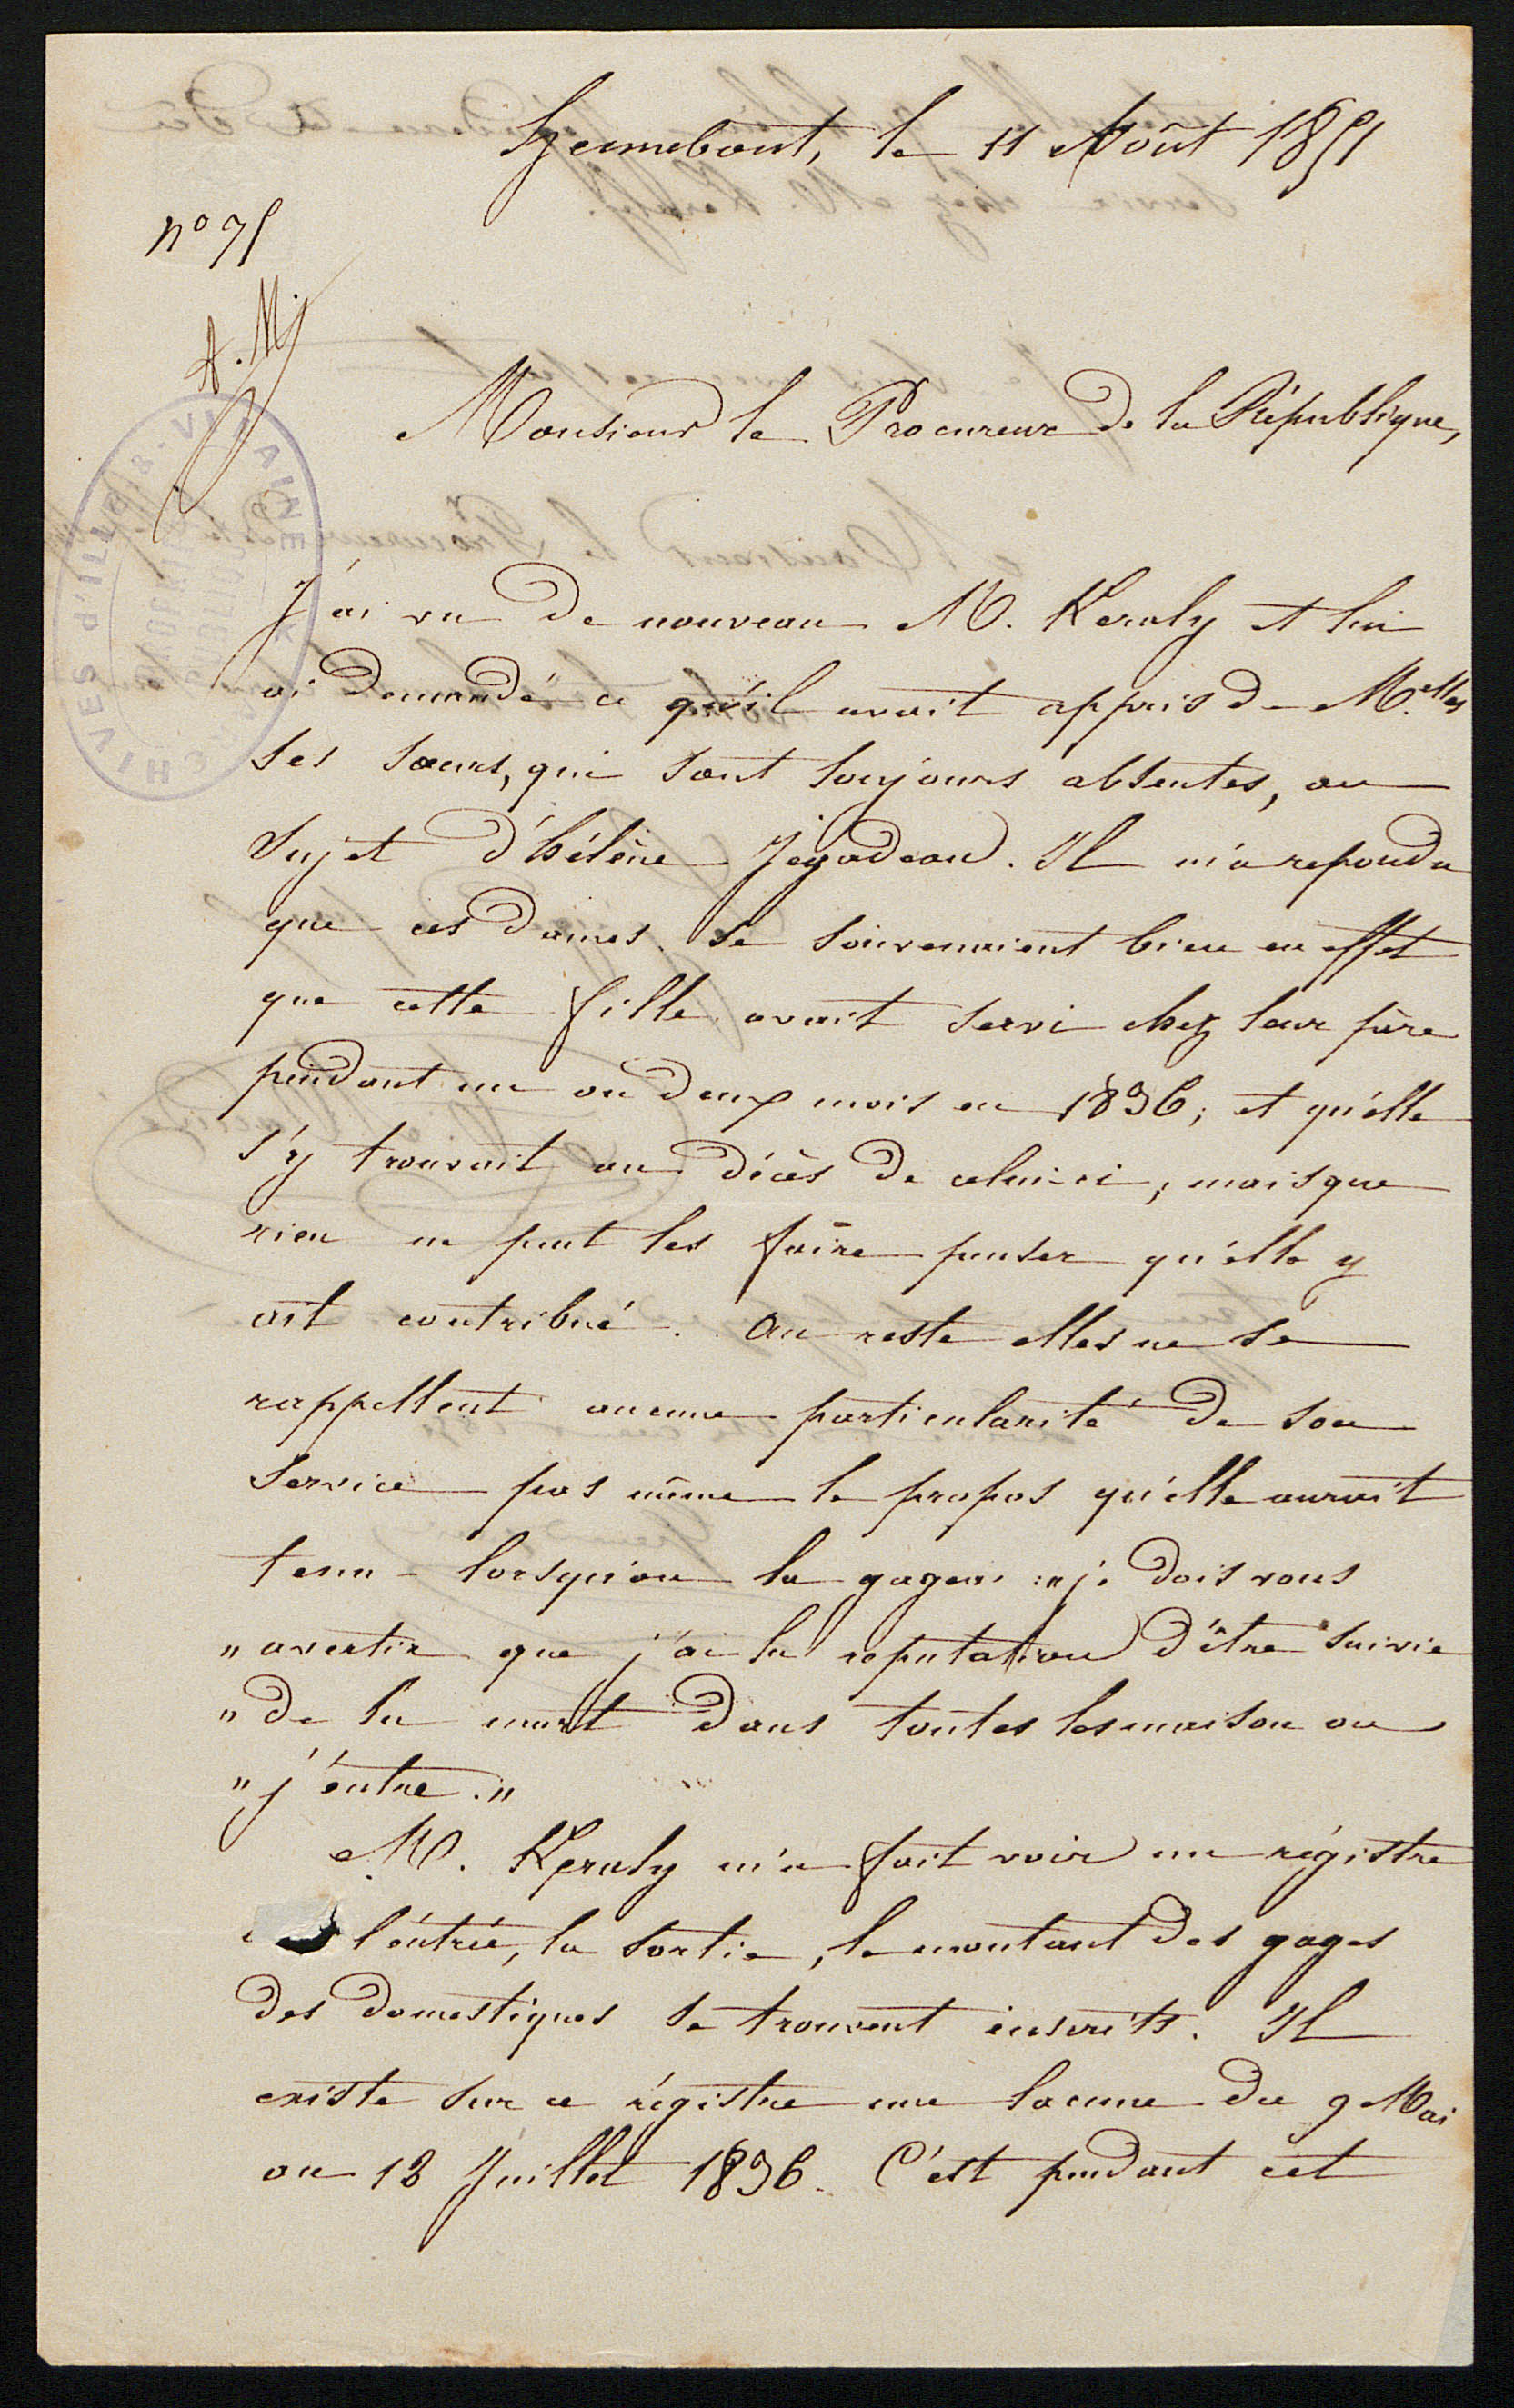 Hennebont, le 11 Août 1851
n° 75
A. M.
Monsieur le Procureur de la République,
J'ai vu de nouveau M. Keraly et lui
ai demandé ce qu'il avait appris de M.elles
ses sœurs, qui sont toujours absentes, au
sujet d'hélène Jegadeau. Il m'a repondu
que ces dames se souvenaient bien en effet
que cette fille avait servi chez leur père
pendant un ou deux mois en 1836; et qu'elle
s'y trouvait au décès de celui-ci; mais que
rien ne peut les faire penser qu'elle y
ait contribué. Au reste elles ne se
rappellent aucune particularité de son
service pas même le propos qu'elle aurait
tenu lorsqu'on la gagea: "je dois vous
" avertir que j'ai la reputation d'être suivie
" de la mort dans toutes les maison ou
" j'entre. "
M. Keraly m'a fait voir un régistre
l'entrée, la sortie, le montant des gages
des domestiques se trouvent inscrits. Il
existe sur ce régistre une lacune du 9 Mai
au 12 Juillet 1836. C'est pendant cet
ARCHIVES d'ILLE-&-VILAINE